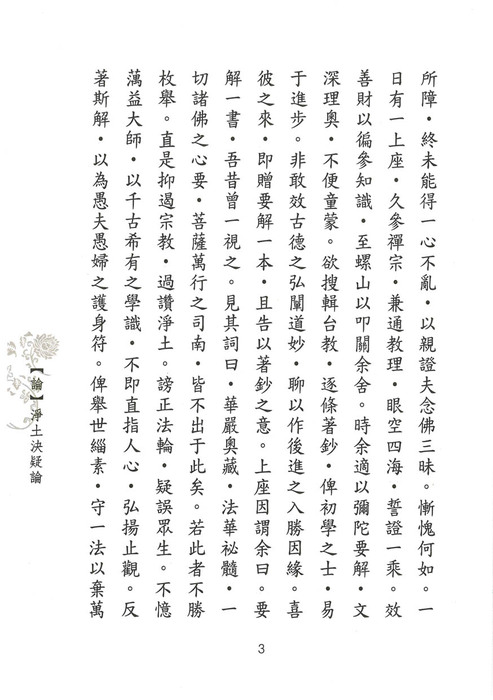 所障・終未能得一心不亂・以親證夫念佛三昧。慚愧何如。一
日有一上座・久參禪宗・兼通教理・眼空四海・誓證一乘。效
善財以徧參知識・至螺山以叩關余舍。時余適以彌陀要解・文
深理奧・不便童蒙。欲搜輯台教・逐條著鈔・俾初學之士・易
于進步。非敢效古德之弘闡道妙・聊以作後進之入勝因緣。喜
彼之來・即贈要解一本・且告以著鈔之意。上座因謂余曰。要
解一書・吾昔曾一視之。見其詞曰・華嚴奧藏・法華祕髓・一
切諸佛之心要・菩薩萬行之司南・皆不出于此矣。若此者不勝
枚舉。直是抑遏宗教・過讚淨土。謗正法輪・疑誤眾生。不憶
蕅益大師・以千古希有之學識・不即直指人心・弘揚止觀。反
著斯解・以為愚夫愚婦之護身符。俾舉世緇素・守一法以棄萬
【論】淨土決疑論
3